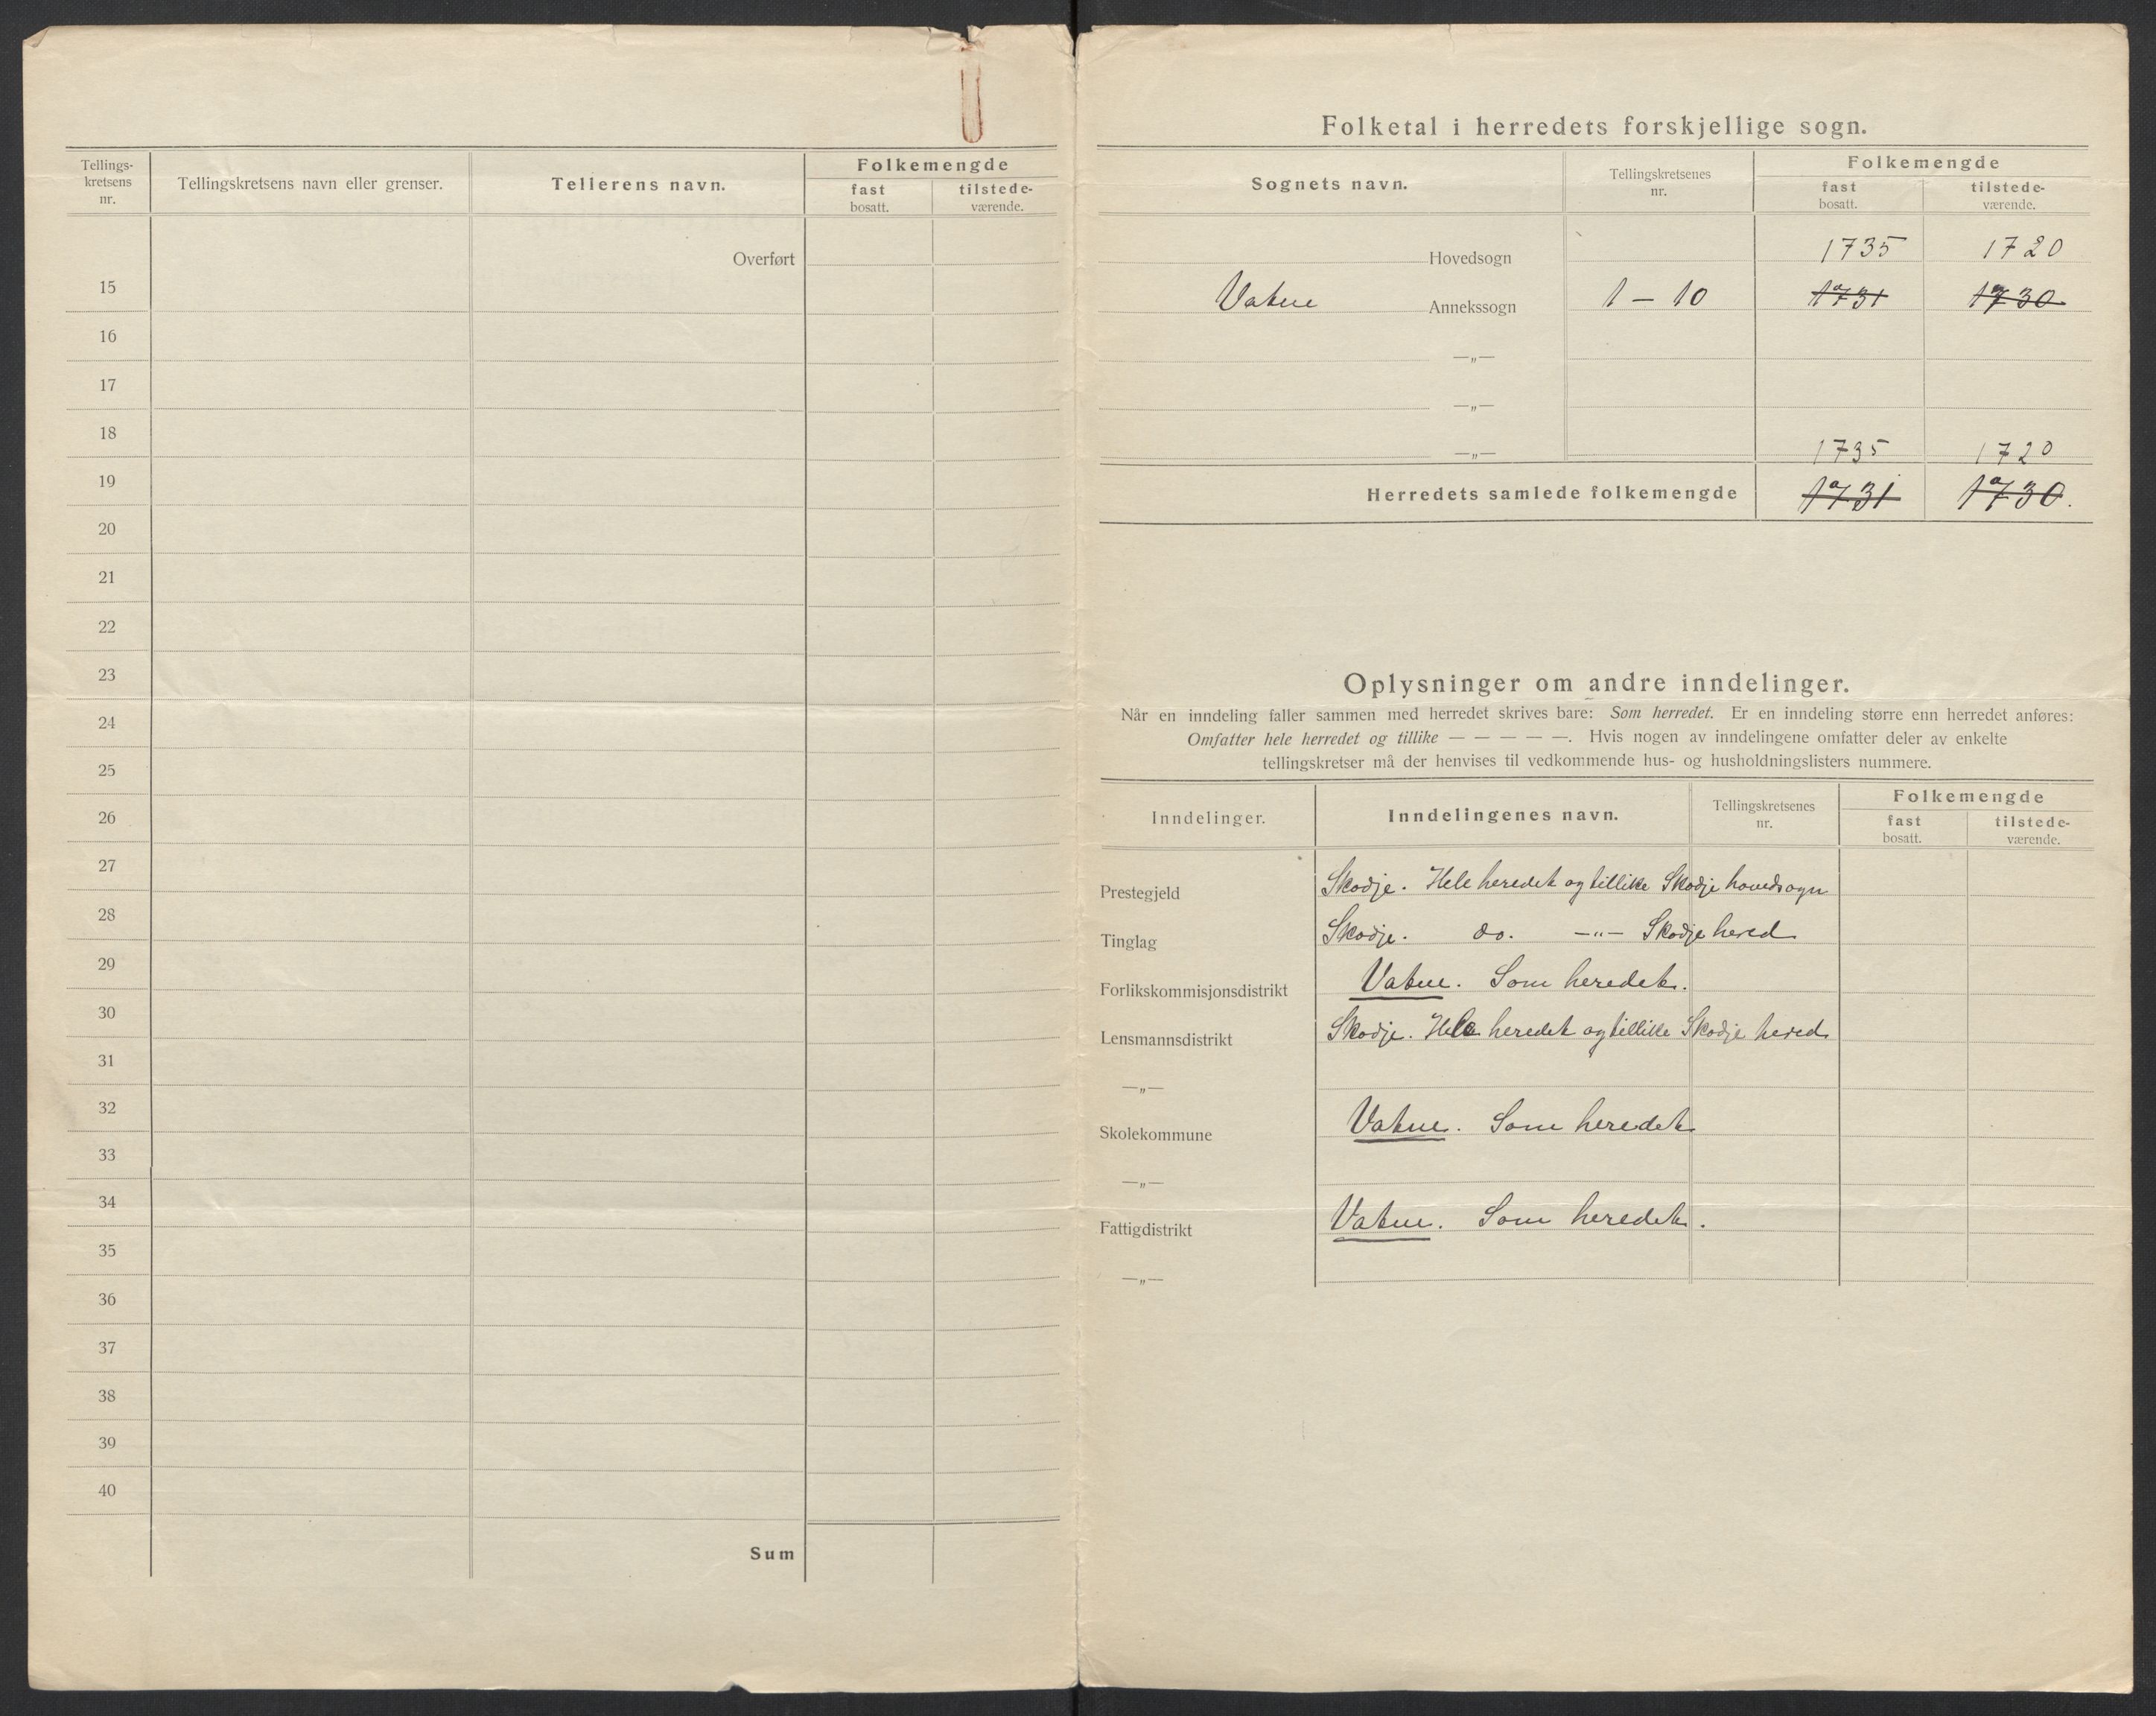 Tellings-
kretsens
nr.
Tellingskretsens navn eller grenser.
Tellerens navn.
Folkemengde
fast
bosatt.
tilstede-
værende.
Overført
15
16
17
18
19
20
21
22
23
24
25
26
27
28
29
30
31
32
33
34
35
36
37
38
39
40
Sum
Folketal i herredets forskjellige sogn.
Sognets navn.
Tellingskretsenes
nr.
Folkemengde
fast
bosatt.
tilstede-
værende.
Hovedsogn 1735 1720
Vatne Annekssogn 1 – 10 1731 1730
—„—
—„—
—„— 1735 1720
Herredets samlede folkemengde 1731 1730.
Oplysninger om andre inndelinger.
Når en inndeling faller sammen med herredet skrives bare: Som herredet. Er en inndeling større enn herredet anføres:
Omfatter hele herredet og tillike — — — — —. Hvis nogen av inndelingene omfatter deler av enkelte
tellingskretser må der henvises til vedkommende hus- og husholdningslisters nummere.
Inndelinger.
Inndelingenes navn.
Tellingskretsenes
nr.
Folkemengde
fast
bosatt.
tilstede-
værende.
Prestegjeld Skodje. Hele heredet og tillike Skodje hovedsogn
Tinglag Skodje. do. —„— Skodje hered
Forlikskommisjonsdistrikt Vatne. Som heredet.
Lensmannsdistrikt Skodje. Hele heredet og tillike Skodje hered
—„—
Skolekommune Vatne. Som heredet
—„—
Fattigdistrikt Vatne. Som heredet.
—„—